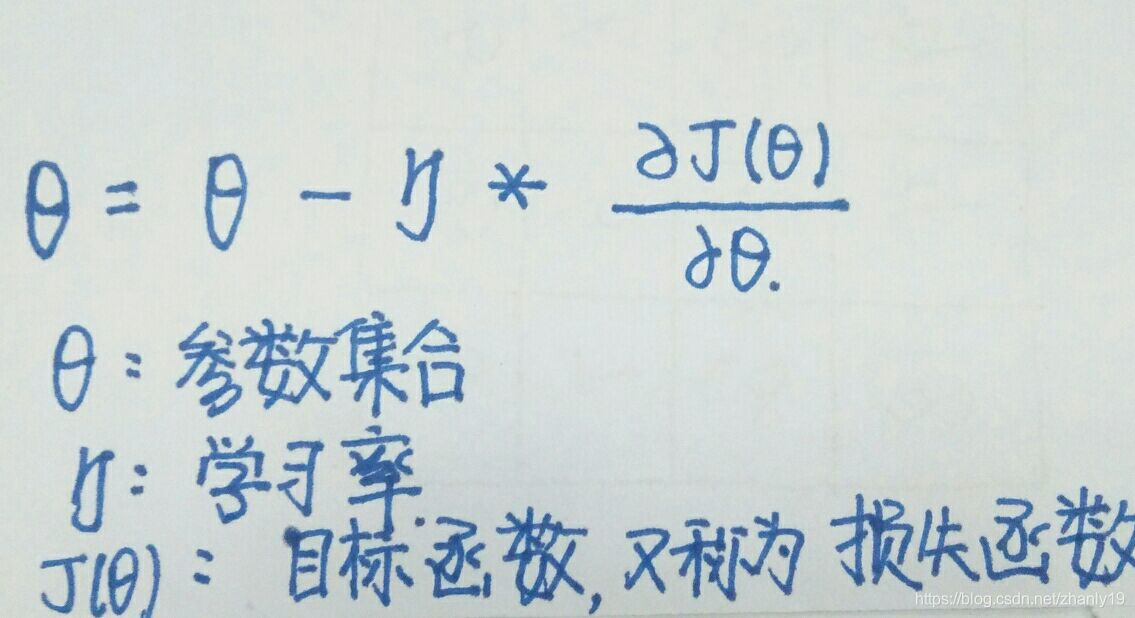 θ = θ - η * ∂J(θ)
∂θ.
θ: 参数集合
η: 学习率.
J(θ): 目标函数, 又称为 损失函数
https://blog.csdn.net/zhanly19